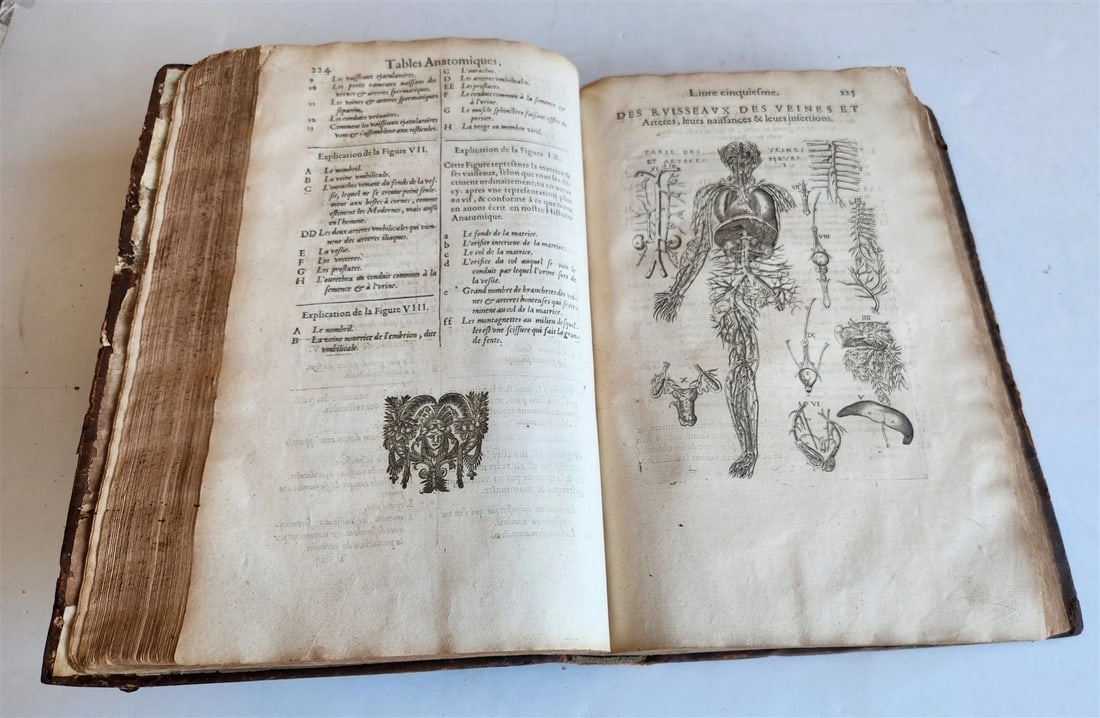 224
Tables Anatomiques,
9 Les vaisseaux ejaculatoires.
Les petits rameaux naissans des
veines & arteres spermatiques
Les veines & arteres spermatiques
separees.
12 Les conduits vrinaires.
13 Comment les vaisseaux ejaculatoires
vont & s'assemblent aux testicules.
Explication de la Figure VII.
A Le nombril.
B La veine vmbilicale.
C L'ourachos venant du fonds de la ves-
sie, lequel ne se trouue point seule-
ment aux bestes à cornes, comme
estiment les Modernes, mais aussi
en l'homme.
DD Les deux arteres vmbilicales qui vien-
nent des arteres iliaques.
E La vessie.
F Les vreteres.
G Les prostates.
H L'ourethra ou conduit commun à la
semence & à l'vrine.
Explication de la Figure VIII.
A Le nombril.
B La veine nourrice de l'embrion, dite
vmbilicale.
C L'ourachos.
D Les arteres vmbilicales.
EE Les prostates.
F Le conduit commun à la semence &
à l'vrine.
G Le muscle sphincter faisant office de
portier.
H La verge ou membre viril.
Explication de la Figure IX.
Cette Figure represente la matrice &
ses vaisseaux, selon que tous les
criuent ordinairement, ou en
cy-apres vne representation plus
au vif, & conforme à ce que nous
en auons écrit en nostre Histoire
Anatomique.
a Le fonds de la matrice.
b L'orifice interieur de la matrice.
c Le col de la matrice.
d L'orifice du col auquel se voit le
conduit par lequel l'vrine sort de
la vessie.
e Grand nombre de branchettes des vei-
nes & arteres honteuses qui se ter-
minent au col de la matrice.
ff Les montagnettes au milieu desquel-
les est vne scissure qui fait la gran-
de fente.
Liure cinquiesme.
225
DES RVISSEAVX DES VEINES ET
Arteres, leurs naissances & leurs insertions.
TABLE DES VEINES
ET ARTERES FIGVRE
VII
VIII
IIII
IX
X
VI
V